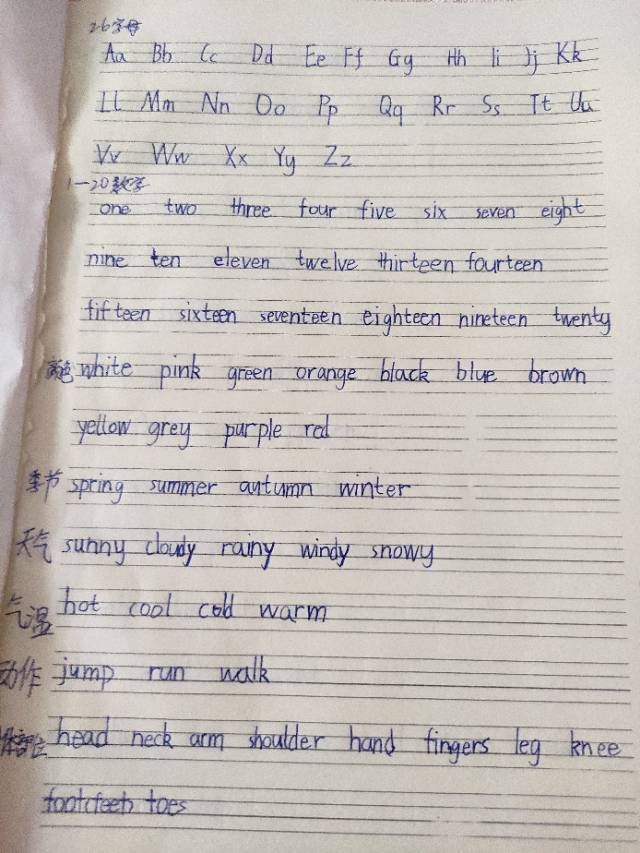 26字母
Aa Bb Cc Dd Ee Ff Gg Hh Ii Jj Kk
Ll Mm Nn Oo Pp Qq Rr Ss Tt Uu
Vv Ww Xx Yy Zz
1-20数字
one two three four five six seven eight
nine ten eleven twelve thirteen fourteen
fifteen sixteen seventeen eighteen nineteen twenty
颜色 white pink green orange black blue brown
yellow grey purple red
季节 spring summer autumn winter
天气 sunny cloudy rainy windy snowy
气温 hot cool cold warm
动作 jump run walk
head neck arm shoulder hand fingers leg knee
foot(feet) toes